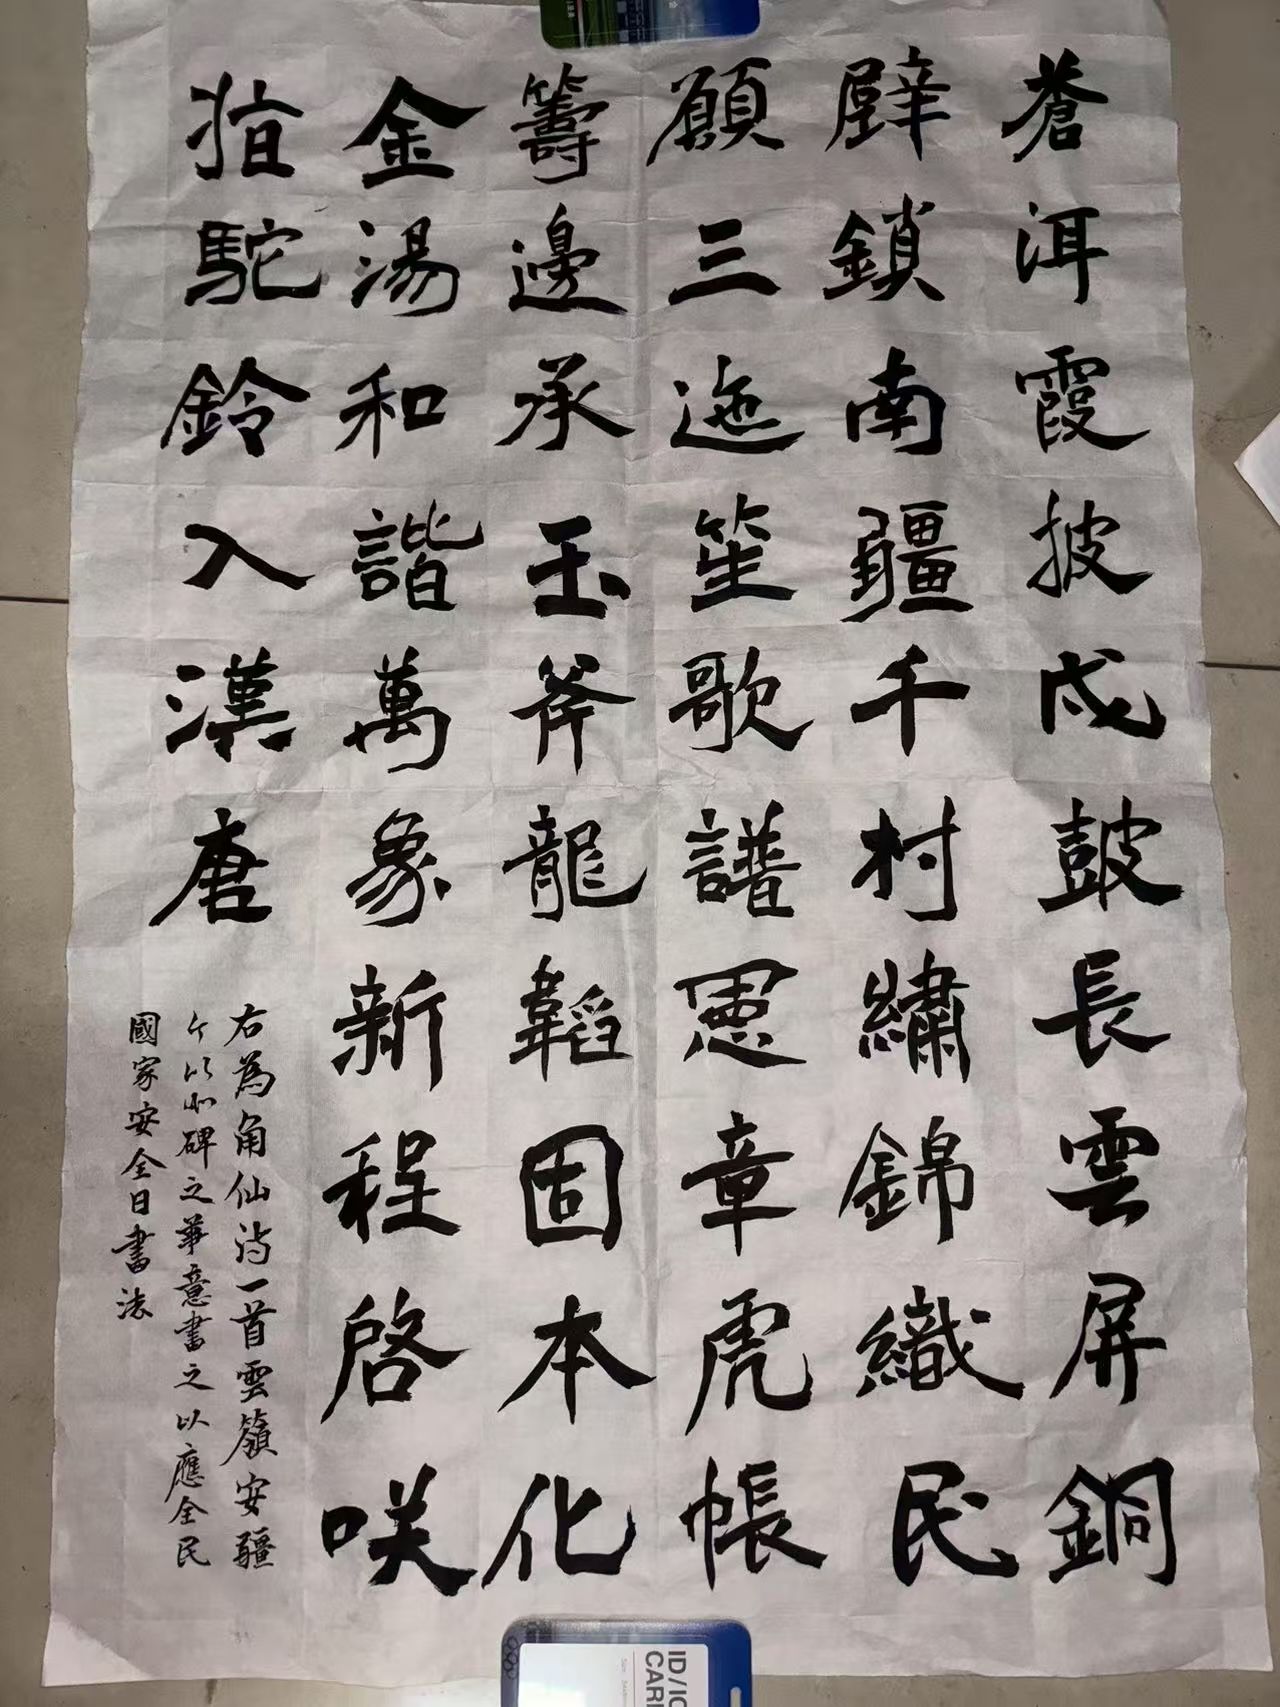 蒼洱霞披戍鼓長雲屏銅
壁鎖南疆千村繡錦織民
願三迤笙歌譜憲章虎帳
籌邊承玉斧龍韜固本化
金湯和諧萬象新程啓咲
指駝鈴入漢唐
右為角仙詩一首雲嶺安疆
今以北碑之筆意書之以應全民
國家安全日書法
ID/IC
CARD